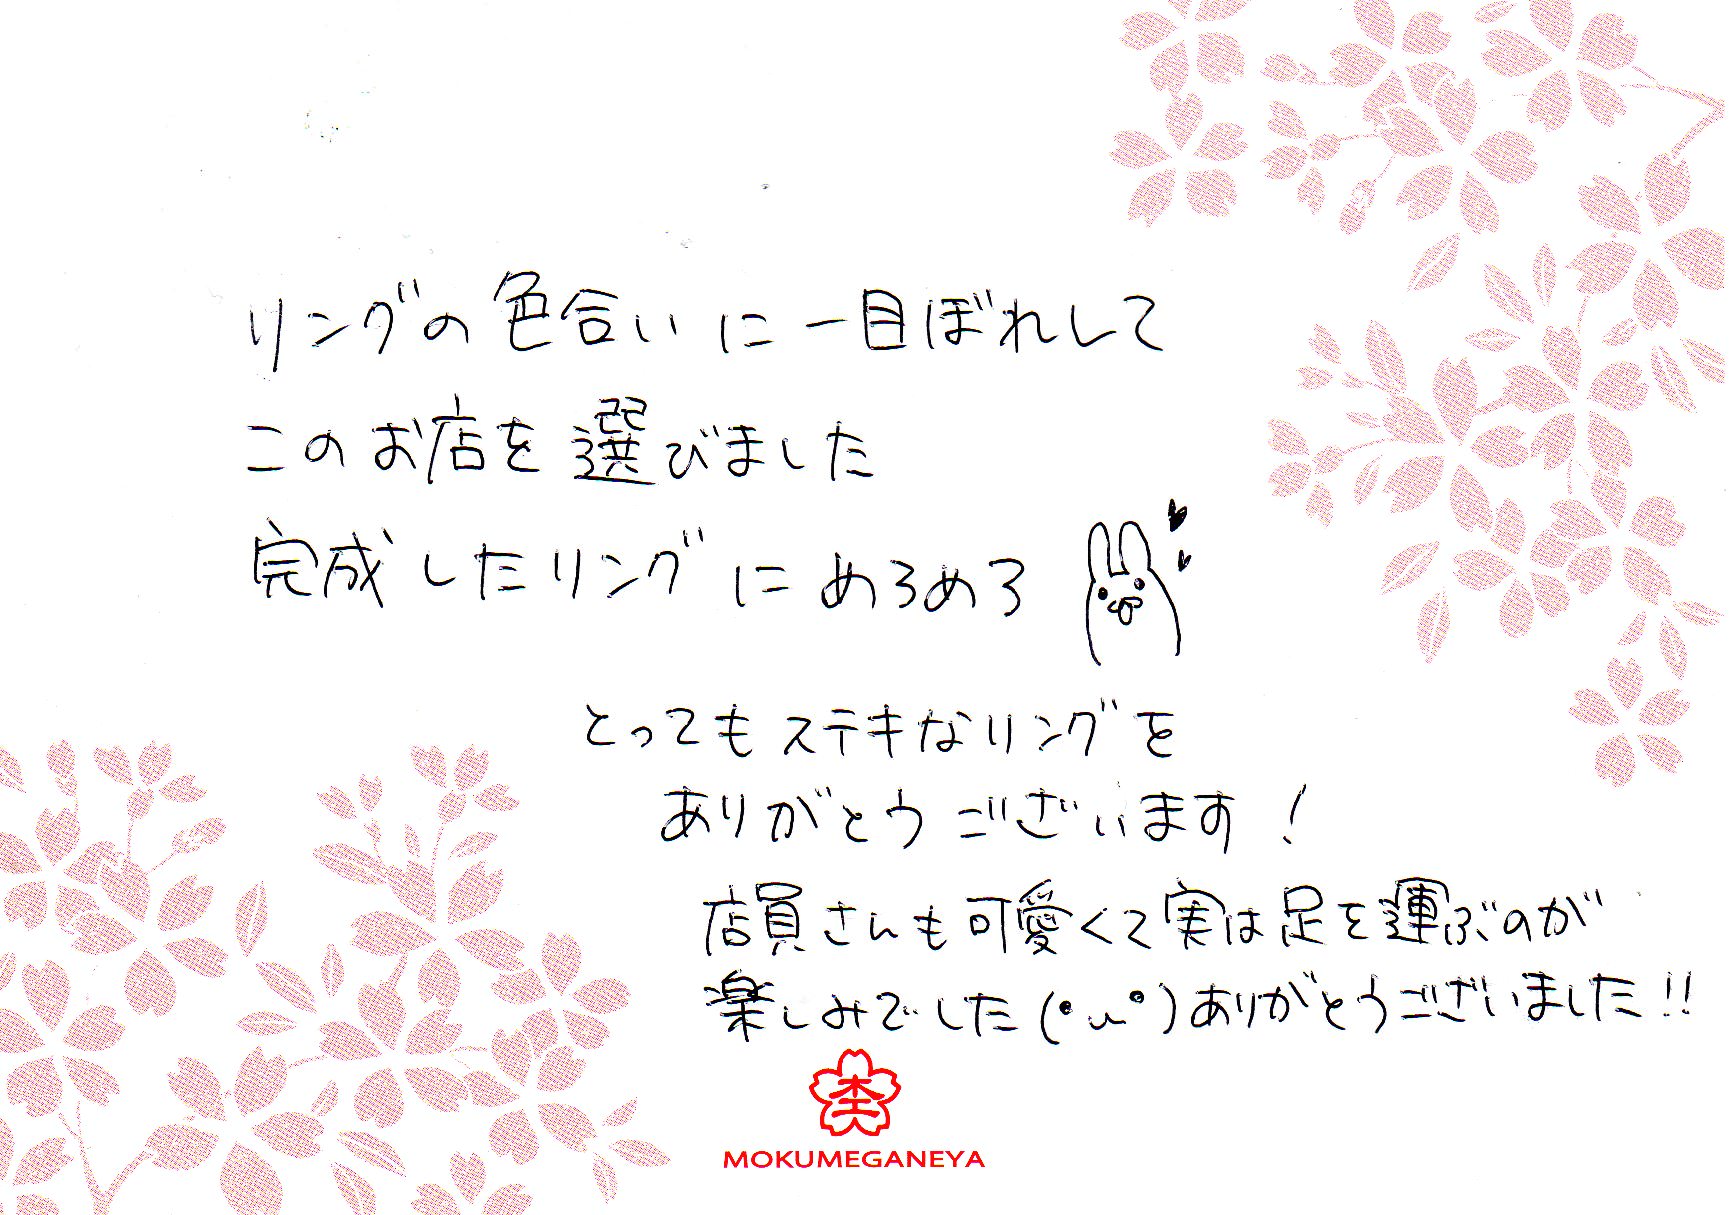 リングの色合いに一目ぼれして
このお店を選びました
完成したリングにめろめろ
とってもステキなリングを
ありがとうございます！
店員さんも可愛くて実は足を運ぶのが
楽しみでした(°ω°)ありがとうございました!!
杢
MOKUMEGANEYA